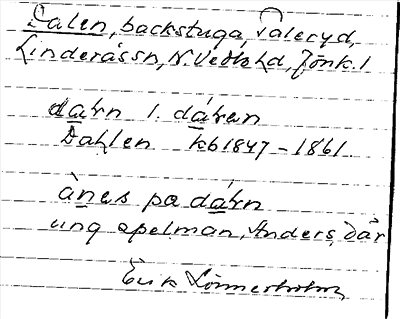 Dalen, backstuga, Valeryd,
Linderåssn, N. Vedbo hd, Jönk. l
dałn l. dáłen
Dahlen kb 1847-1861
ànes pa dáłn
ung spelman, Anders, där
Erik Lönnerholm